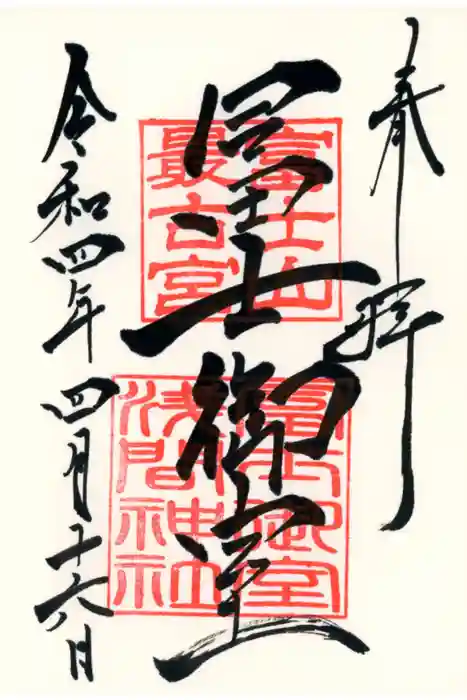 奉拝
冨士御室
富士山
最古宮
冨士御室
浅間神社
令和四年四月十六日